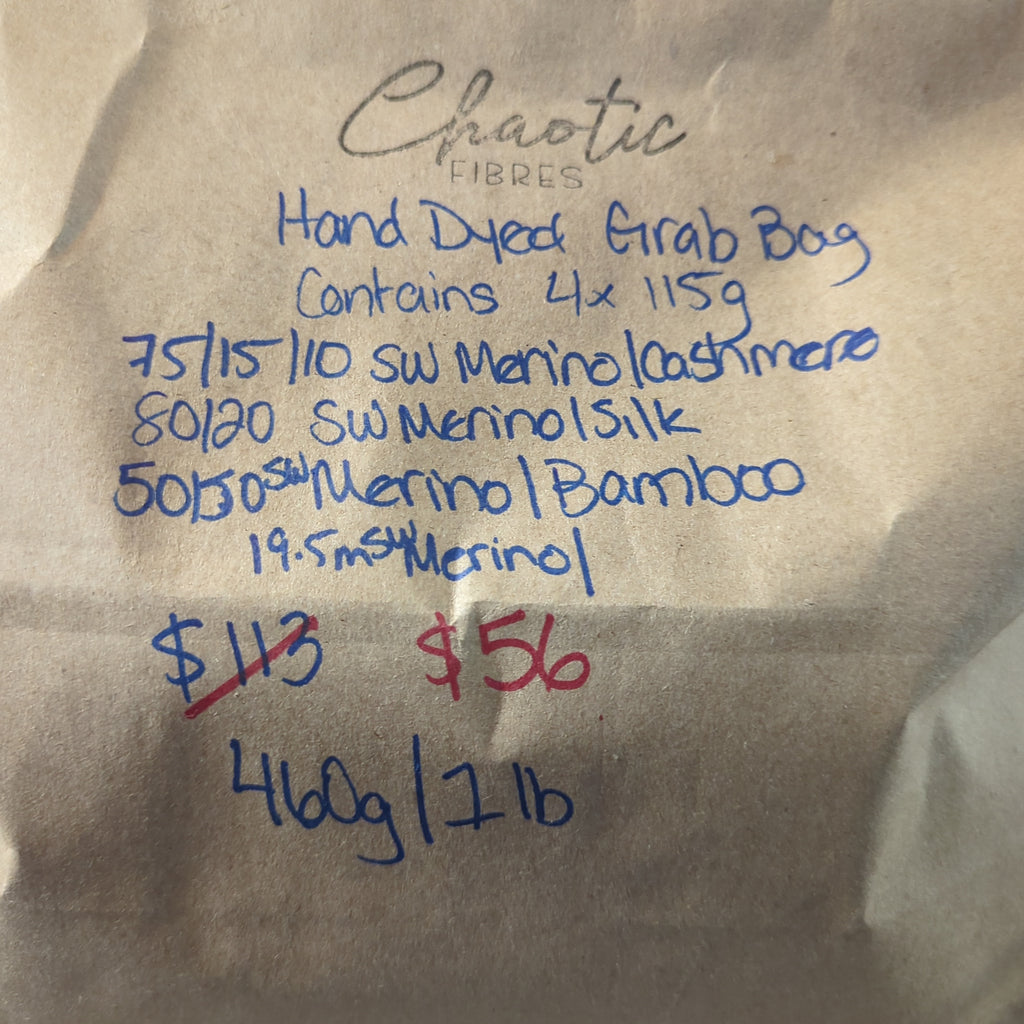 Chaotic
FIBRES
Hand Dyed Grab Bag
Contains 4x 115g
75/15/10 SW Merino/Cashmere
80/20 SW Merino/Silk
50/50 SW Merino/Bamboo
19.5m SW Merino/
$113 $56
460g/1 lb